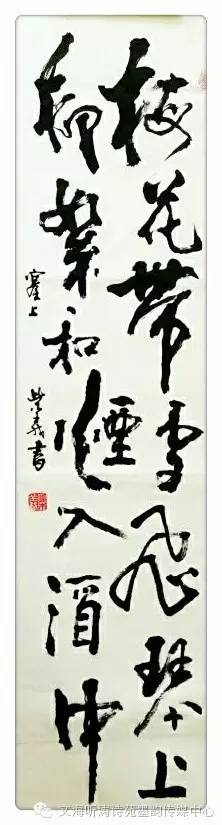 梅花帶雪飛琴上
柳絮和煙入酒中
塞上
義書
文海听涛诗苑墨韵传媒中心